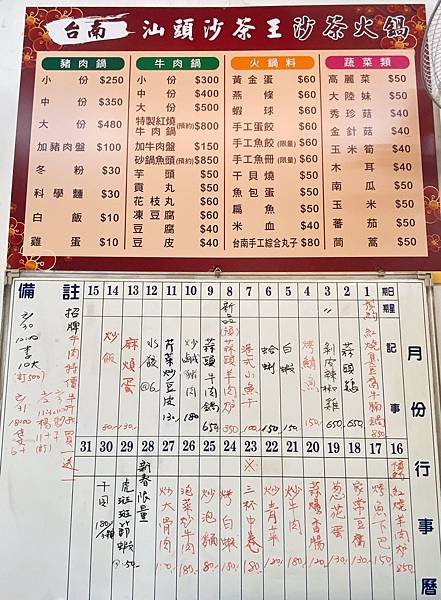 台南 汕頭沙茶王沙茶火鍋
豬肉鍋
小份 $250
中份 $350
大份 $480
加豬肉盤 $100
冬粉 $30
科學麵 $30
白飯 $10
雞蛋 $10
牛肉鍋
小份 $300
中份 $400
大份 $500
特製紅燒牛肉鍋(預約) $800
加牛肉盤 $150
砂鍋魚頭(預約) $850
芋頭 $50
貢丸 $50
花枝丸 $60
凍豆腐 $40
豆腐 $40
豆皮 $40
火鍋料
黃金蛋 $60
燕條 $60
蝦球 $60
手工蛋餃 $60
手工魚餃(限量) $60
手工魚冊(限量) $60
干貝燒 $50
魚包蛋 $60
扁魚 $50
米血 $40
台南手工綜合丸子 $80
蔬菜類
高麗菜 $50
大陸妹 $50
秀珍菇 $40
金針菇 $40
玉米筍 $40
木耳 $40
南瓜 $50
玉米 $50
番茄 $50
茼蒿 $50
月份行事曆
期日
期星
記事
1
2 蒜頭雞 650
3 剝皮辣椒雞 650
4 烤鯖魚 150
5 白蝦 150
6 蛤蜊 150
7 港式小魚干 100
8 新品 蒜頭羊肉炉 350
9 蒜頭牛肉鍋 650
10 180
11 芹菜炒豆皮 130
12 水餃 @6
13 麻燒蛋 130
14 炒飯 80
15
16 紅燒羊肉炉 850
17 烤魚下巴 150
18 家常豆腐 130
19 蔥花蛋 130
20 蒜爆香腸 150
21 炒牛肉 180
22 炒青菜 120
23 三杯中卷 180
24 烤白蝦 180
25 炒泡麵 80
26 泡菜炒牛肉 180
27 炒大骨肉 150
28 新春限量
29 虎斑斑節蝦
30
31
備註
招牌牛肉特價牛肉 買一送一